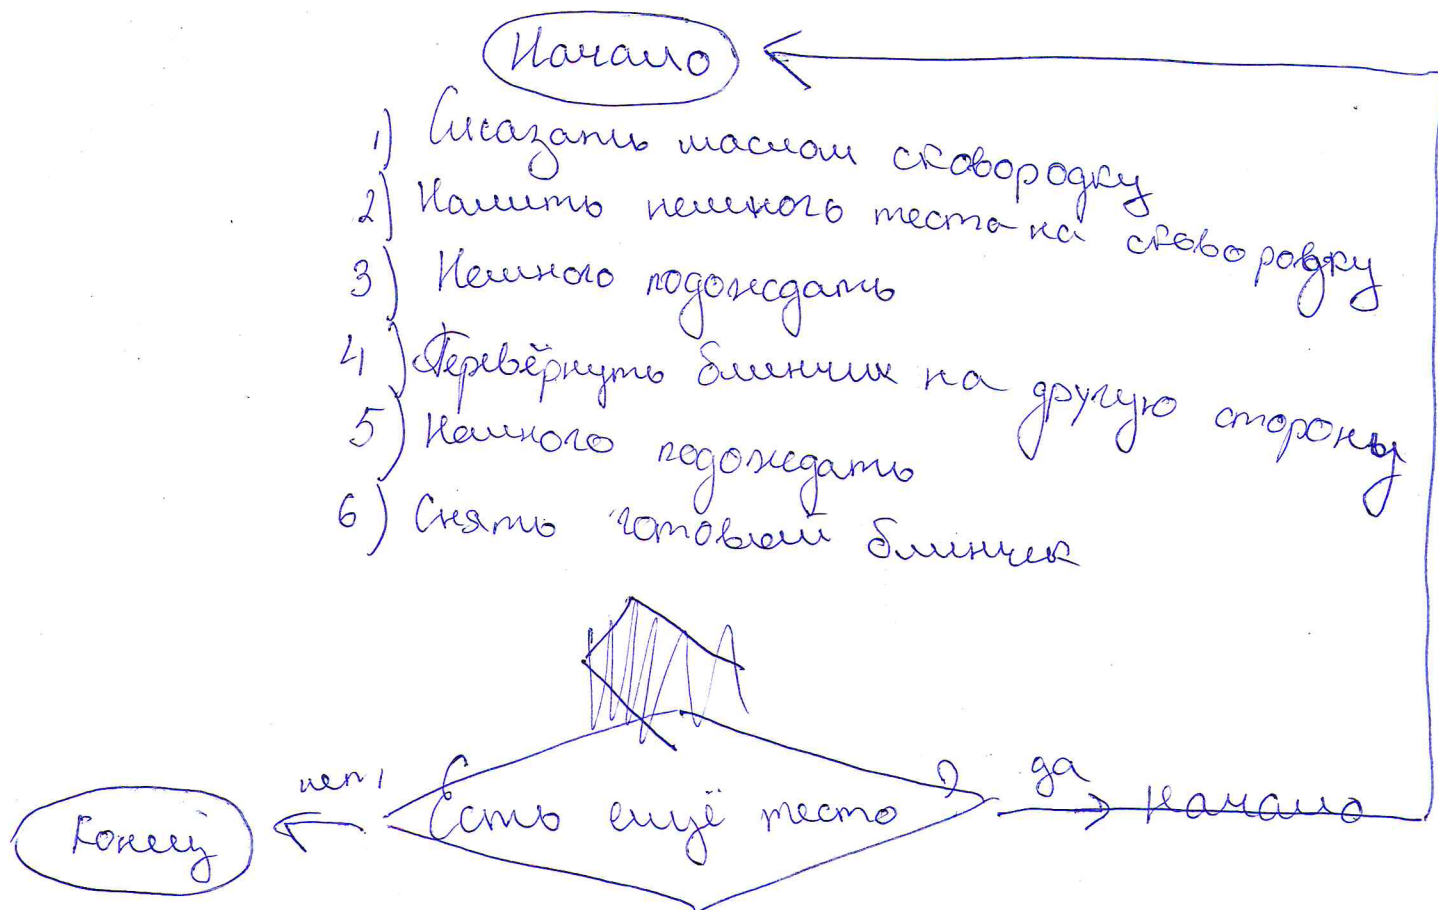 Начало
1) Смазать маслом сковородку
2) Налить немного теста на сковородку
3) Немного подождать
4) Перевёрнуть блинчик на другую стороны
5) Немного подождать
6) Снять готовый блинчик
нет
да
Есть ещё тесто ?
начало
Конец